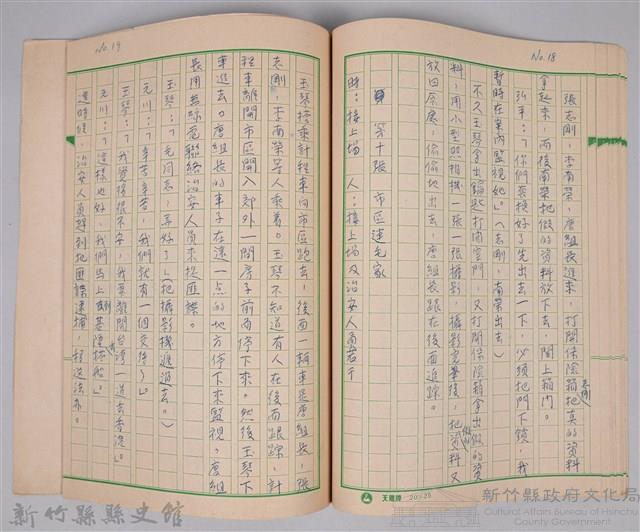 No.18
張志剛，李南榮，唐組長進來，打開保險箱把真的資料
拿起來，而後南榮把假的資料放下去，關上箱門。
弘平：「你們裝扮好了先出去一下，必須把門下鎖，我
暫時在案內監視她。」（志剛，南榮出去）
不久玉琴拿出鑰匙打開室門，又打開保險箱拿出假的資
料，用小型照相機一張一張攝影，攝影完畢後，把資料又
放回原處，偷偷地出去，唐組長跟在後面追踪。
第十張 市區達毛家
時：接上場 人：接上場及治安人員若干
天鵝牌 20×25
No.19
玉琴搭乘計程車向市區跑去，後面一輛車是唐組長，張
志剛，李南榮等人乘着。玉琴不知道有人在後面跟踪，計
程車離開市區開入郊外一間房子前面停下來。然後玉琴下
車進去。唐組長的車子在遠一點的地方停下來監視。唐組
長用無線電聯絡治安人員來捉匪諜。
玉琴：「毛同志，弄好了」（把攝影機遞過去。）
元川：「辛苦辛苦，我們就有一個交待了」
玉琴：「我覺得很不安，我要離開台灣一道去香港。」
元川：「這樣也好，我們馬上到基隆搭船。」
這時候，治安人員趕到把匪諜逮捕，移送法辦。
新竹縣縣史館
新竹縣政府文化局
Cultural Affairs Bureau of Hsinchu
County Government